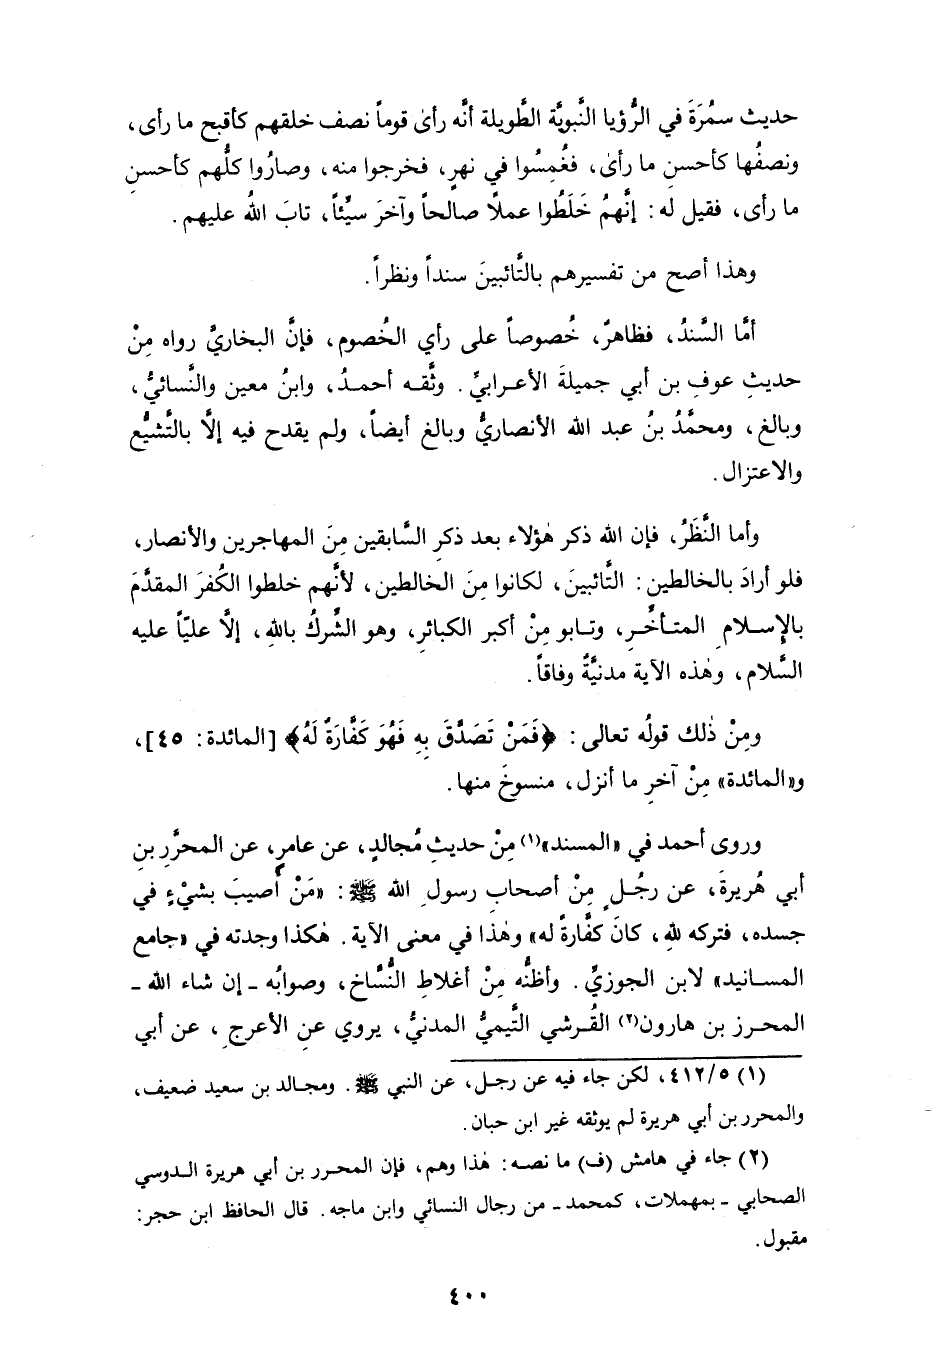 حديث سمُرَةَ في الرُّؤيا النَّبويَّة الطَّويلة أنَّه رأىٰ قوماً نصف خلقهم كأقبح ما رأى،
ونصفُها كأحسنِ ما رأىٰ، فغُمِسُوا في نهرٍ، فخرجوا منه، وصارُوا كلُّهم كأحسنِ
ما رأى، فقيل له: إنَّهمُ خَلَطُوا عملاً صالحاً وآخرَ سيِّئاً، تابَ اللهُ عليهم.
وهذا أصح من تفسيرهم بالتَّائبينَ سنداً ونظراً.
أمَّا السَّندُ، فظاهرٌ، خُصوصاً على رأي الخُصوم، فإنَّ البخاريَّ رواه مِنْ
حديثِ عوفِ بن أبي جميلةَ الأعرابيِّ. وثَّقه أحمدُ، وابنُ معين والنَّسائيُّ،
وبالغ، ومحمَّدُ بنُ عبد الله الأنصاريُّ وبالغ أيضاً، ولم يقدح فيه إلَّا بالتَّشيُّع
والاعتزال.
وأما النَّظَرُ، فإن الله ذكر هٰؤلاء بعد ذكرِ السَّابقين مِنَ المهاجرين والأنصار،
فلو أرادَ بالخالطين: التَّائبينَ، لكانوا مِنَ الخالطين، لأنَّهم خلطوا الكُفرَ المقدَّمَ
بالإسلامِ المتأخِّرِ، وتابو مِنْ أكبر الكبائرِ، وهو الشِّركُ باللهِ، إلَّا عليّاً عليه
السَّلام، وهٰذه الآية مدنيَّةٌ وفاقاً.
ومِنْ ذٰلك قولُه تعالى: ﴿فَمَنْ تَصَدَّقَ بِهِ فَهُوَ كَفَّارَةٌ لَهُ﴾ [المائدة: ٤٥]،
و«المائدة» مِنْ آخرِ ما أنزل، منسوخَ منها.
وروى أحمد في «المسند»(١) مِنْ حديثِ مُجالدٍ، عن عامرٍ، عن المحرَّرِ بنِ
أبي هُريرةَ، عن رجُلٍ مِنْ أصحابِ رسولِ الله ﷺ: «مَنْ أُصيبَ بشيْءٍ في
جسده، فتركه للهِ، كانَ كفَّارةً له» وهٰذا في معنى الآية. هٰكذا وجدته في «جامع
المسانيد» لابن الجوزيِّ. وأظنُّه مِنْ أغلاطِ النُّسَّاخ، وصوابُه ـ إن شاء الله ـ
المحرز بن هارون(٢) القُرشي التَّيميُّ المدنيُّ، يروي عنِ الأعرجِ، عن أبي
(١) ٤١٢/٥، لكن جاء فيه عن رجل، عن النبي ﷺ. ومجالد بن سعيد ضعيف،
والمحرر بن أبي هريرة لم يوثقه غير ابن حبان.
(٢) جاء في هامش (ف) ما نصه: هٰذا وهم، فإن المحرر بن أبي هريرة الدوسي
الصحابي ـ بمهملات، كمحمد ـ من رجال النسائي وابن ماجه. قال الحافظ ابن حجر:
مقبول.
٤٠٠